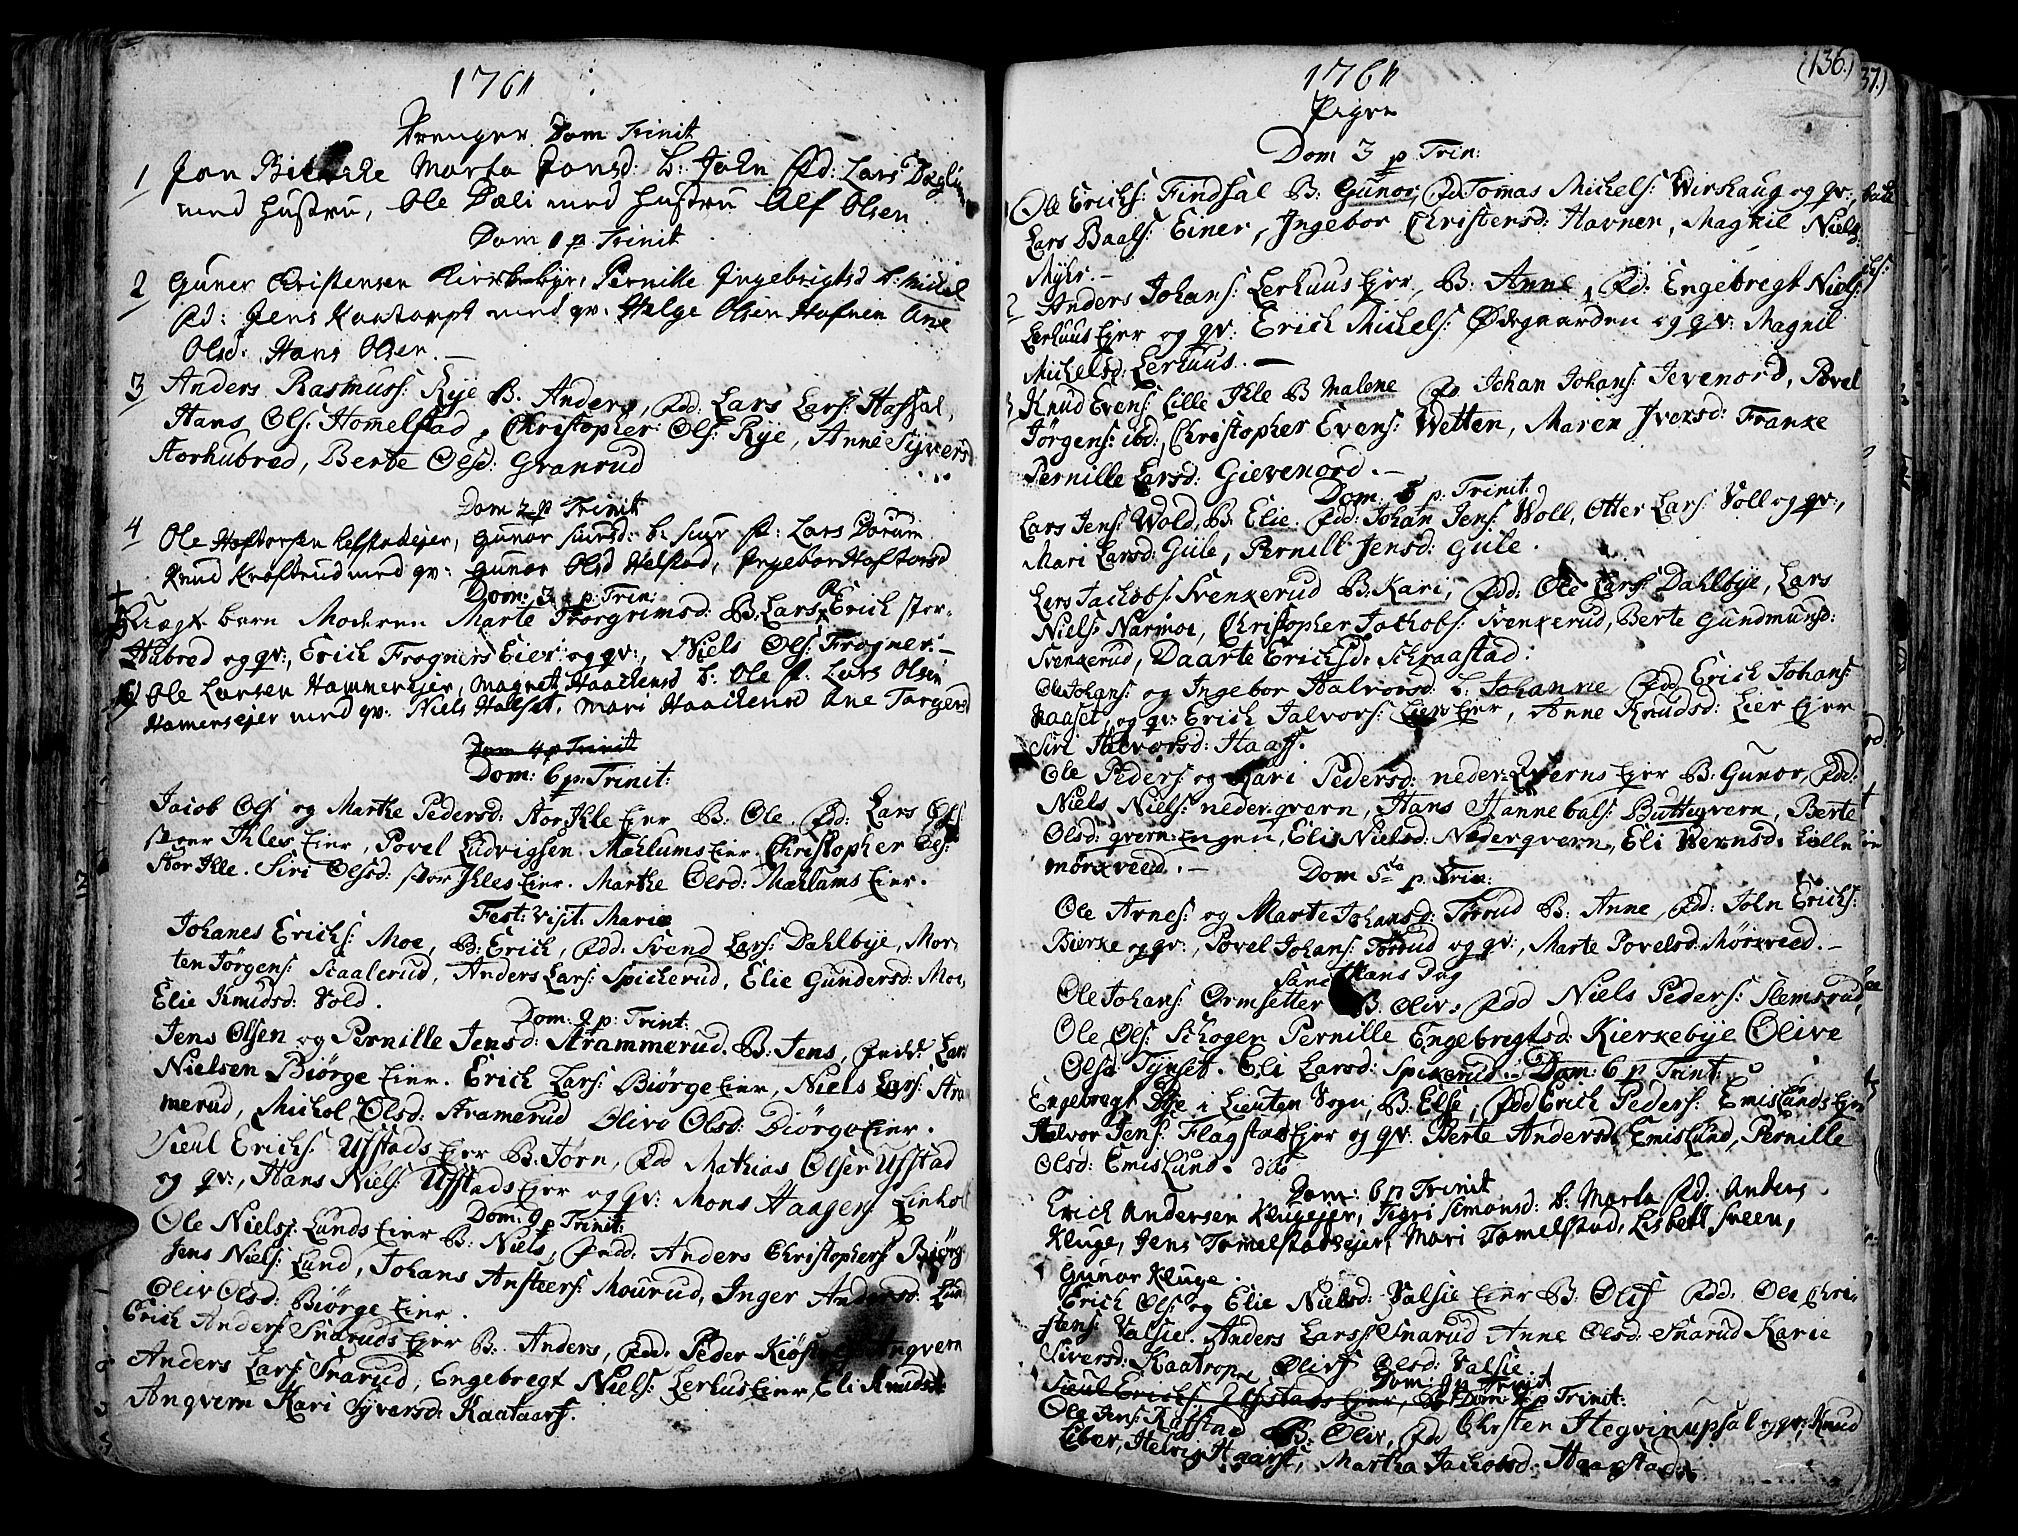 1761
Drenger Dom Trinit
1 Jon Marta Jonsd: b: John Fd: Lars
med hustru, Ole Dæli med hustru Alf Olsen
Dom 1 p Trinit
2 Guner Christensen Pernille Ingebrigtsd b: Michel
Fd: Jens Kaatorp med qv: Helge Olsen Hafnen Ane
Olsd: Hans Olsen. —
3 Anders Rasmuss: Rye B. Anders, Fdd: Lars Lars: Hassal,
Hans Ols: Homelstad, Christopher Ols: Rye, Anne Syvers
Storhubred, Berte Olsd: Granrud
Dom 2 p Trinit
4 Ole Haftorsen Helstadejer, Gunor Siursd: b: Siur f: Lars Dorum
Knud Kraftrud med qv: Gunor Olsd Helstad, Ingebor Haftorsd
Dom: 3 p: Trin:
+ 5 Uægt barn Moderen Marte Torgrimsd: B: Lars, Erich stor-
Hubred og qv:, Erich Frogners Eier og qv:, Niels Ols: Frogner. —
6 Ole Larsen Hammersejer, Magnil Haachensd b: Ole f: Lars Olsen
Hamersejer med qv: Niels Halset, Mari Haachensd Ane Torgersd
Dom 4 p Trinit
Dom: 6 p: Trinit:
Jacob Ols: og Marthe Pedersd: Stor Ihle Eier B: Ole. Fdd: Lars Ols:
stoer Ihles Eier, Povel Ludvigsen Mæhlums Eier Christopher Ols:
Stor Ihle. Siri Olsd: stor Ihles Eier. Marthe Olsd: Mæhlums Eier.
Fest: Visit: Mariæ
Johanes Erichs: Moe, B: Erich, Fdd: Svend Lars: Dahlbye, Mor-
ten Jørgens: Staalerud, Anders Lars: Spicherud, Elie Gundersd: Moe,
Elie Knudsd: Vold.
Dom: 9 p: Trint:
Jens Olsen og Pernille Jensd: Strammerud. B: Jens, Fadd: Lars
Nielsen Biørge Eier. Erich Lars: Biørge Eier, Niels Lars: Stra-
merud, Michol Olsd: Stramerud Olive Olsd: Biørge Eier.
Siul Erichs: Ufstads Ejer B: Jørn, Fdd Mathias Olsen Ufstad
og qv:, Hans Niels: Ufstads Ejer og qv: Mons Haagens: Linhol
Dom: 9 p Trinit:
Ole Niels: Lunds Eier B: Niels, Fadd: Anders Christophers: Biørg:
Jens Niels: Lund, Johans Ansteers: Mourud, Inger Andersd: Lun
Oliv Olsd: Biørge Eier.
Erich Anders: Snaruds Ejer B: Anders, Fdd: Peder Angvern
Anders Lars: Snarud, Engebregt Niels: Lerhus Eier, Eli Knudsd:
Angvern Kari Syversd: Kaataarp.
(136.)
1761
Piger
Dom 3 p Trin:
1 Ole Erichs: Findsal B: Gunor, Fd Tomas Michels: Wirshaug og qv:,
Lars Baals: Einer, Ingebor Christensd: Havnen, Magnil Nielsd:
Myhr —
2 Anders Johans: Lerhuus Ejer, B: Anne, Fdd: Engebregt Niels:
Lerhuus Ejer og qv: Erich Michels: Ødegaarden og qv: Magnil
Michelsd: Lerhuus. —
3 Knud Evens: Lille Ihle B Malene Fd Johan Johans: Jevenord, Povel
Jørgens: ibd:, Christopher Evens: Wetten, Maren Iversd: Franke
Pernille Larsd: Gievenord. —
Dom: p: Trinit:
Lars Jens: Wold, B: Elie. Fdd: Johan Jens: Woll, Otter Lars: Voll og qv:,
Mari Larsd: Gule, Pernill: Jensd: Gule.
Lars Jachobs: Svenkerud B: Kari, Fdd: Ole Lars: Dahlbye, Lars
Niels: Narmoe, Christopher Jachobs: Svenkerud, Berte Gundmunsd:
Svenkerud, Daarte Erichsd: Schraastad.
Ole Johans: og Ingebor Halvorsd: b: Johanne Fdd Erich Johans:
Haaset, og qv: Erich Halvors: Lier Ejer, Anne Knudsd: Lier Ejer
Siri Halvorsd: Haass.
Ole Peders: og Kari Pedersd: neder: Qverns Ejer B: Gunor, Fdd:
Niels Niels: neder: qvern, Hans Hannebals: Butteqvern, Berte
Olsd: qvern: Engen, Elie Nielsd: Nederqvern, Eli Wernsd: Lille
mørkveed. —
Dom 5ta p: Trin:
Ole Arnes: og Marte Johansd: Tørrud B: Anne, Fdd: John Erichs:
Bierke og qv:, Povel Johans: Tørrud og qv:, Marte Povelsd: Mørkveed. —
Sanc Hans Dag
Ole Johans: Ormsetter B: Oliv: Fdd Niels Peders: Slemsrud,
Ole Ols: Schogen Pernille Engebregtsd: Kierkebye Olive
Olsd: Tynset. Eli Larsd: Spikerud. Dom: 6 p Trint:
Engebregt i Lieuten Sogn, B: Else, Fdd Erich Peders: Emislunds Ejer
Halvor Jens: Flagstad Ejer og qv: Berte Andersd: Emislund, Pernille
Olsd: Emislund. dito
Dom: 6 p Trinit
Erich Andersen Klugejer, Siri Simonsd: b: Marta Fd: Anders
Kluge, Jens Tomelstadsejer, Mari Tomelstad, Lisbett Sveen,
Gunor Kluge.
Erich Ols: og Elie Nielsd: Valsie Eier B: Olif Fdd. Ole Chri-
stens: Valsie. Anders Lars: Snarud Anne Olsd: Snarud Karie
Siversd: Kaatrop, Olive Olsd: Valsie
Dom: 9 p Trinit
Siul Erichs: Ufstads Ejer, B: Dom: p Trinit:
Ole Jens: Kafstad B: Oliv, Fdd Christen Hegvinupsal og qv: Knud
Liber, Helvig Haarst, Martha Jachobsd: Haarstad.